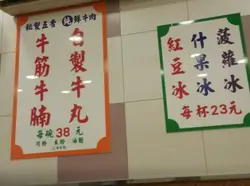 秘製五香 純鮮牛肉
自製牛丸
牛筋牛腩
每碗38元
菠蘿冰
什果冰
紅豆冰
每杯23元